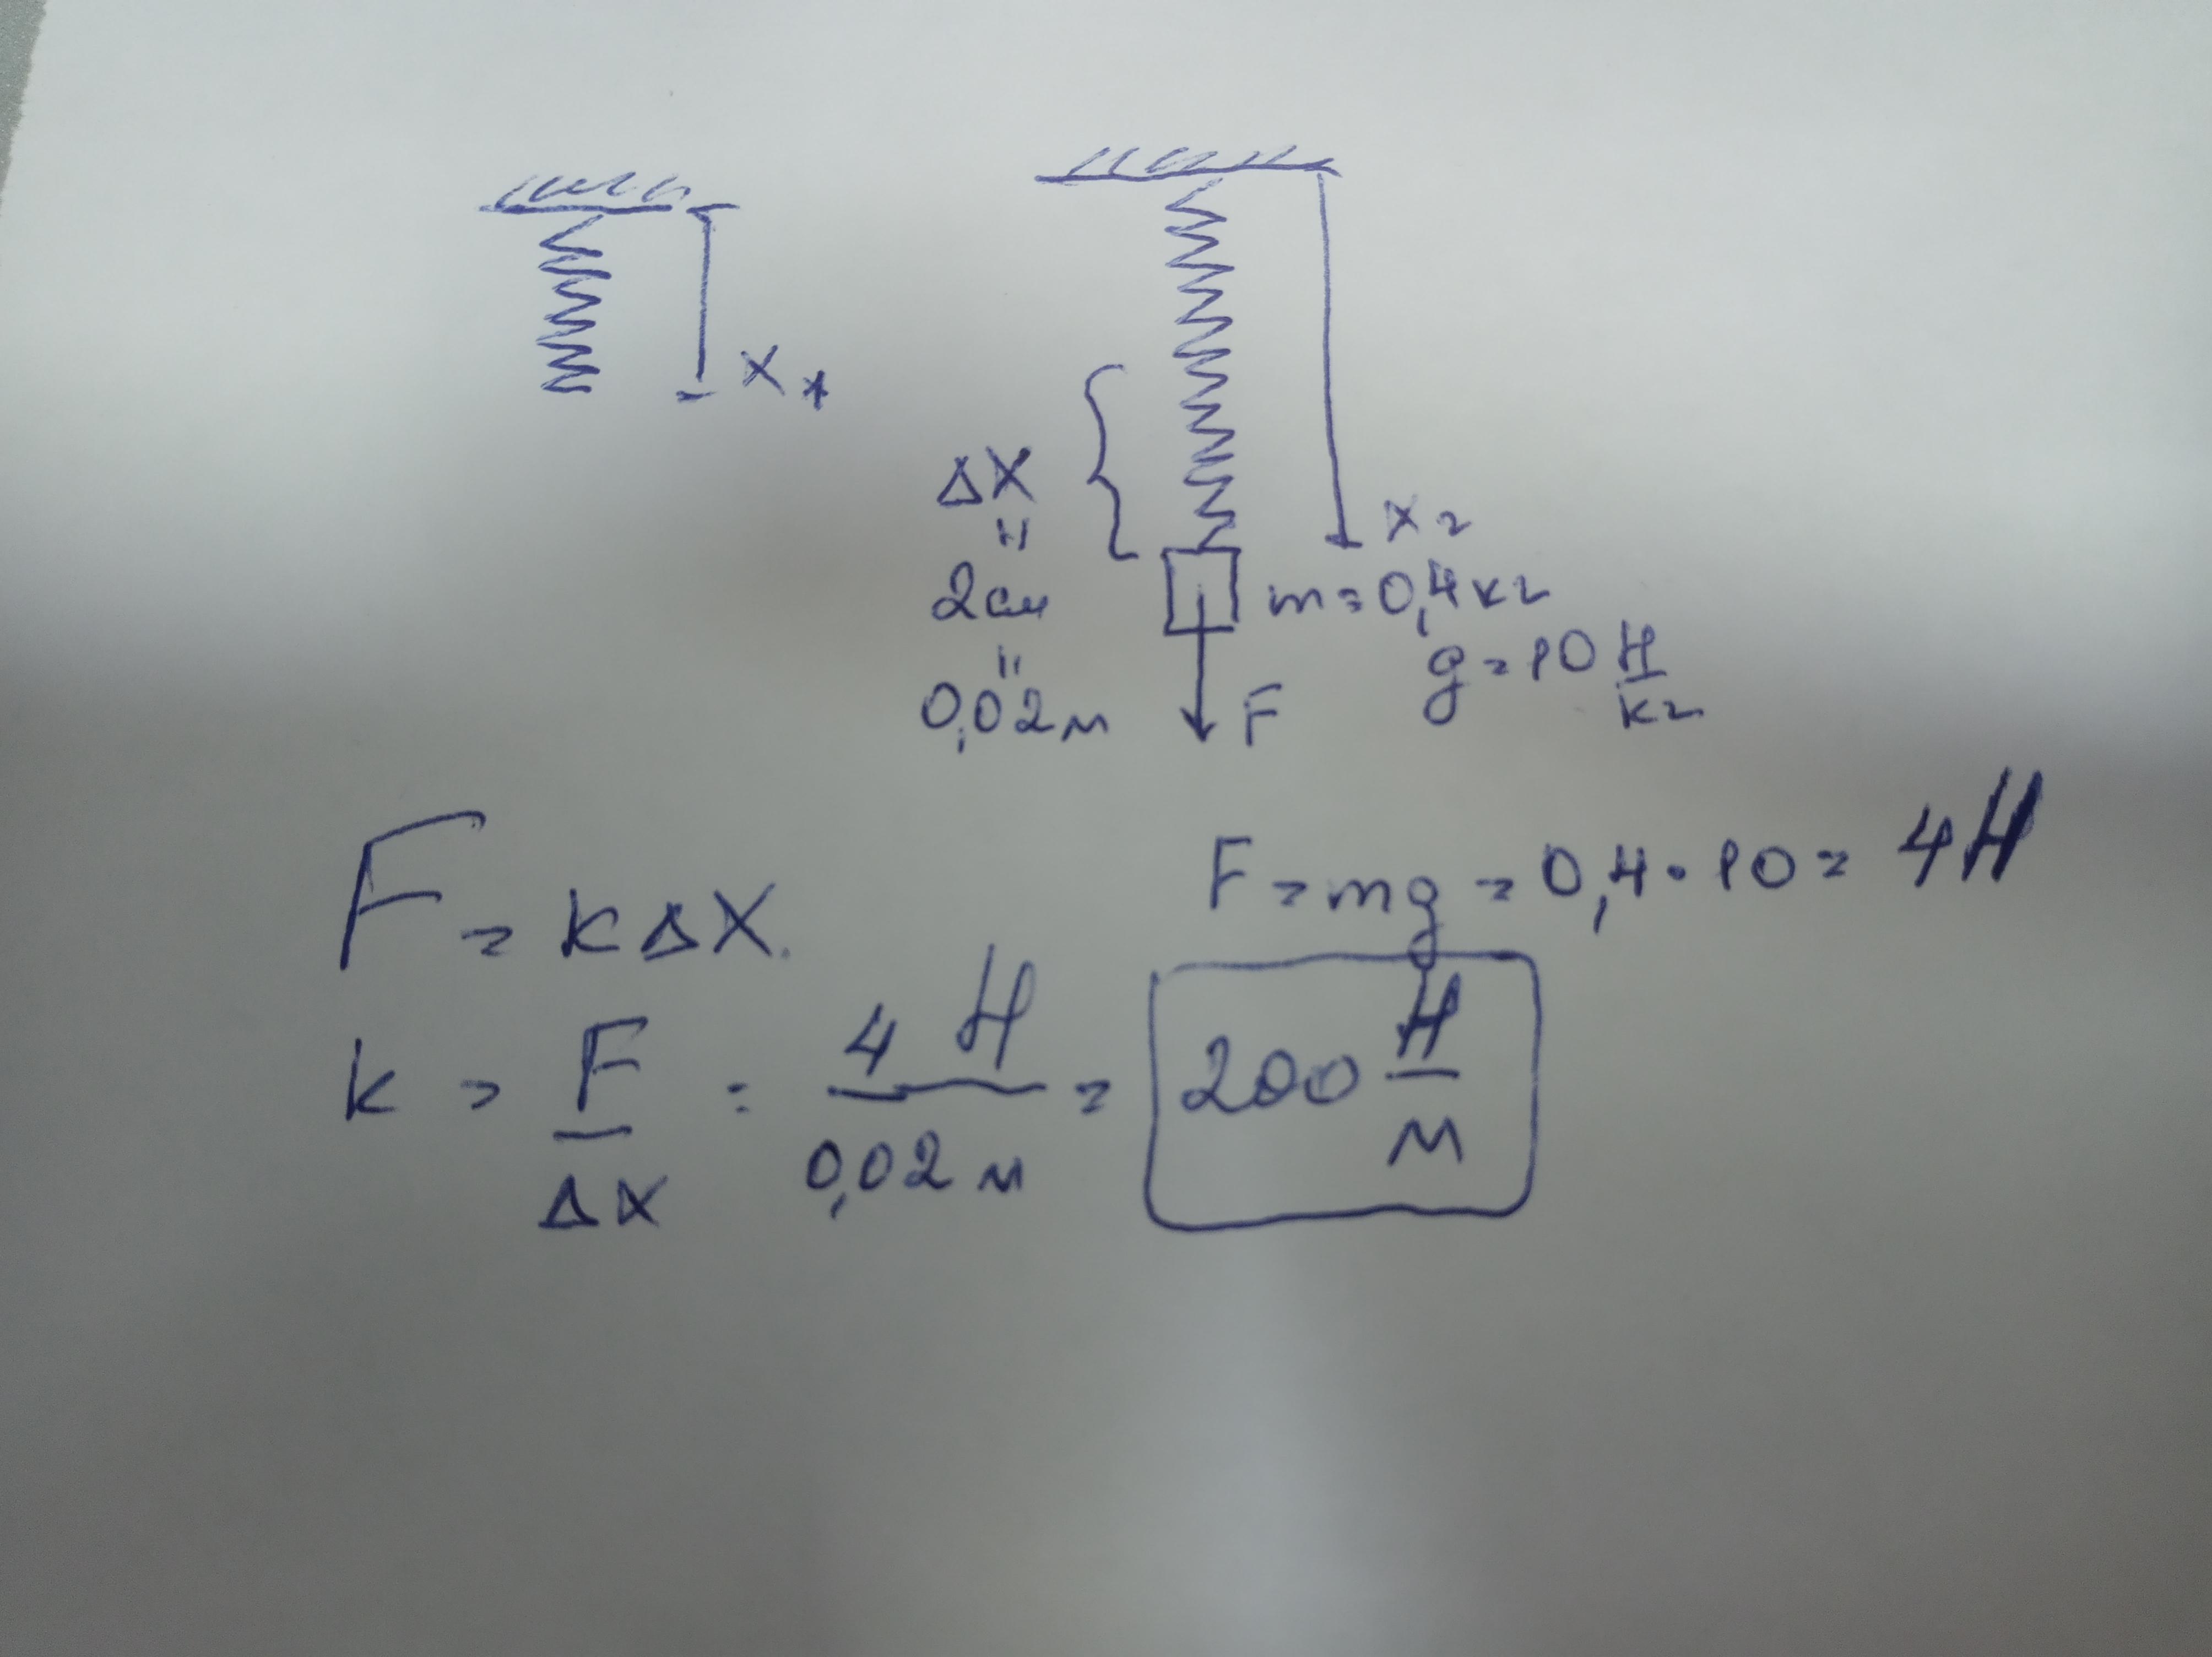 X₁
ΔX
=
2см
=
0,02м
X₂
m=0,4кг
g=10 Н/кг
F
F=kΔX.
F=mg=0,4·10=4Н
k = F/ΔX = 4 Н/0,02 м = 200 Н/м